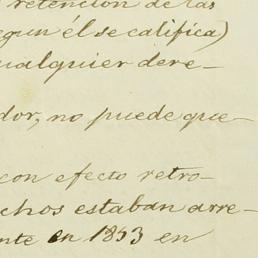 retencion de las
egun él se califica)
ualquier dere-
dor, no puede que-
con efecto retro-
chos estaban arre-
nte en 1853 en